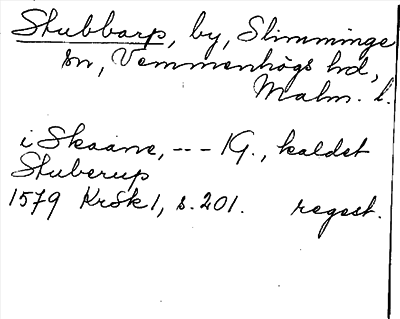 Stubbarp, by, Slimminge
sn, Vemmenhögs hd,
Malm. l.
i Skaane, --- 1G., kaldet
Stuberup
1579 KrSk1, s. 201. regest.